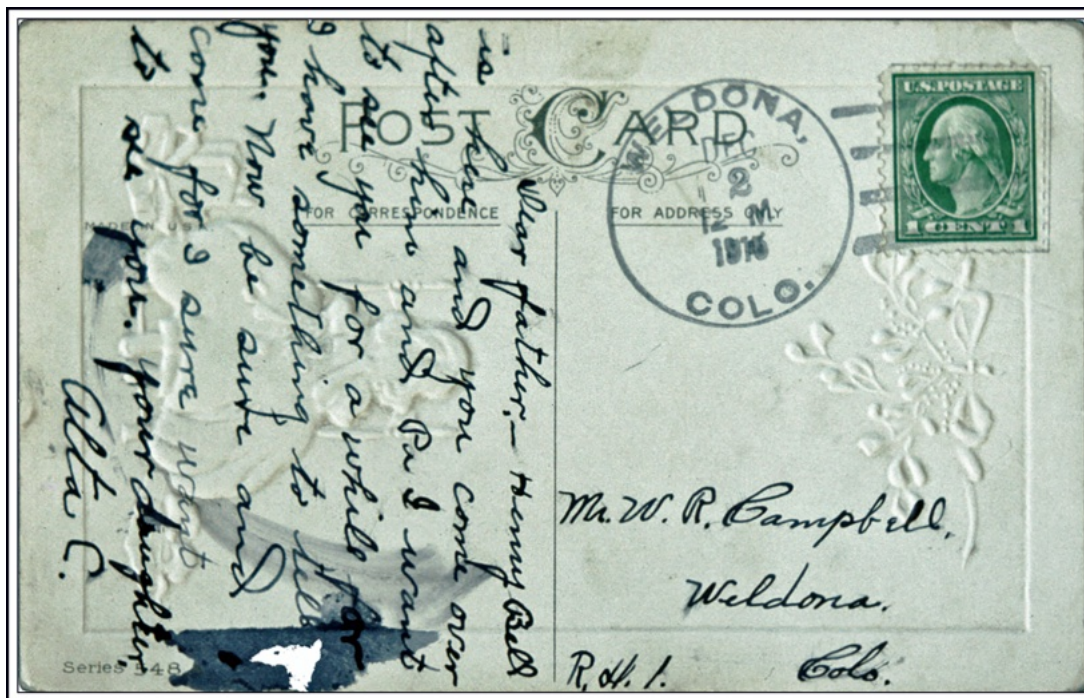 POST CARD
FOR CORRESPONDENCE
FOR ADDRESS ONLY
MADE IN U.S.A.
WELDONA,
DEC
2
12 M
1916
COLO.
U.S. POSTAGE
1 CENT 1
Dear father,— Henry Bell
is here and you come over
after him and Pa I want
to see you for a while for
I have something to tell
you. Now be sure and
come for I sure want
to see you. your daughter,
Alta C.
Mr. W. R. Campbell,
Weldona.
Colo.
R. #. 1.
Series 548